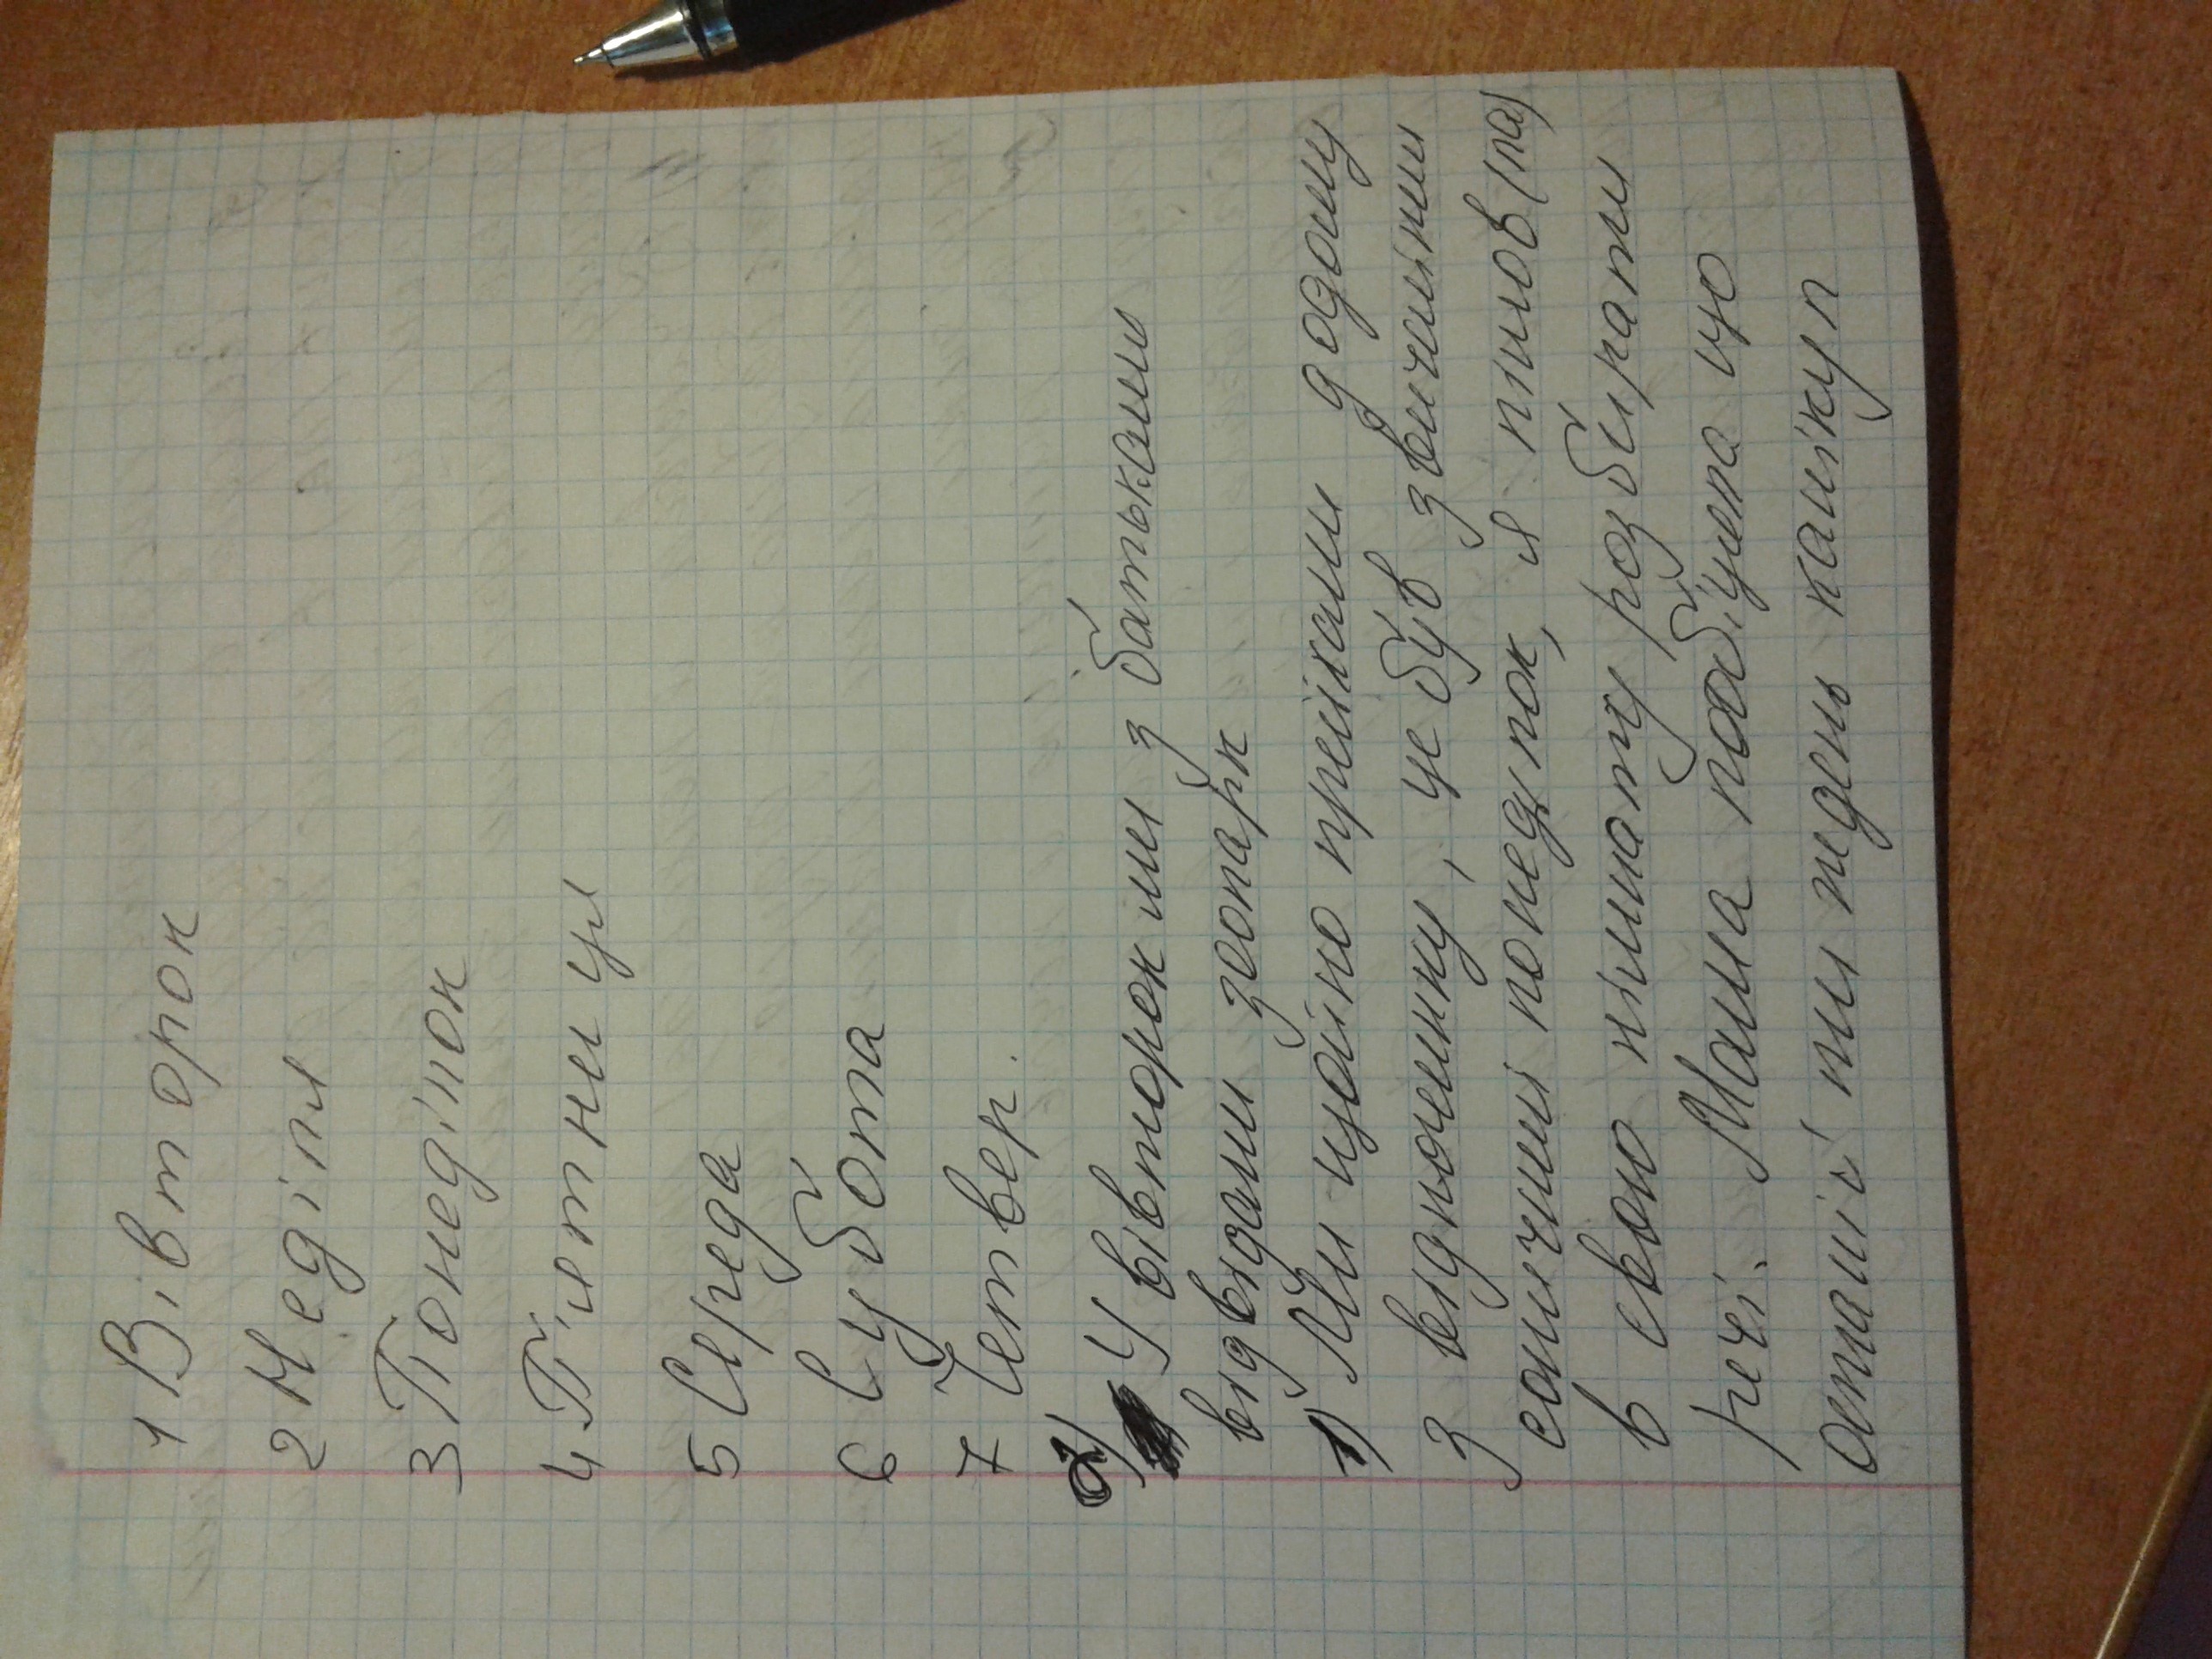 1 Вівторок
2 Неділя
3 Понеділок
4 П'ятниця
5 Середа
6 Субота
7 Четвер.
2) У вівторок ми з батьками
відвідали зоопарк
1) Ми щойно приїхали додому
з відпочинку, це був звичайний
сонячний понеділок, я пішов(ла)
в свою кімнату розбирати
речі. Мама пообіцяла що
останій тиждень канікул